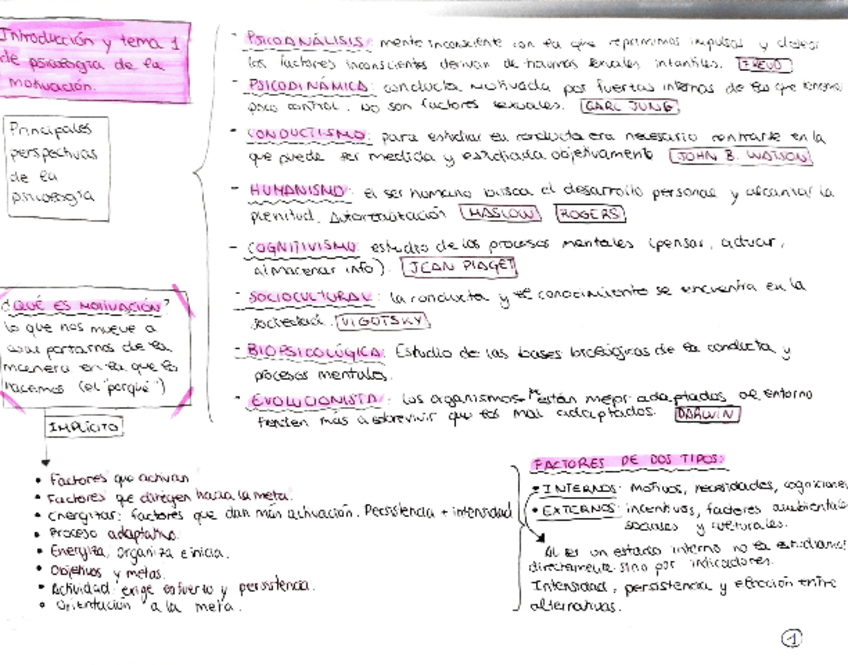 Introducción y tema 1
de psicología de la
motivación.
Principales
perspectivas
de la
psicología
- PSICOANÁLISIS: mente inconsciente con la que reprimimos impulsos y
los factores inconscientes derivan de traumas sexuales infantiles. FREUD
- PSICODINÁMICA: conducta motivada por fuerzas internas de las que tenemos
poco control. No son factores sexuales. CARL JUNG
- CONDUCTISMO: para estudiar la conducta era necesario centrarse en la
que puede ser medida y estudiada objetivamente JOHN B. WATSON
- HUMANISMO: el ser humano busca el desarrollo personal y alcanzar la
plenitud. MASLOW ROGERS
- COGNITIVISMO: estudio de los procesos mentales (pensar, actuar,
almacenar info). JEAN PIAGET
- SOCIOCULTURAL: la conducta y el conocimiento se encuentra en la
sociedad. VIGOTSKY
- BIOPSICOLÓGICA: Estudio de las bases biológicas de la conducta y
procesos mentales.
- EVOLUCIONISTA: los organismos están mejor adaptados al entorno
tienden más a sobrevivir que los mal adaptados. DARWIN
¿QUÉ ES MOTIVACIÓN?
lo que nos mueve a
comportarnos de la
manera en la que lo
hacemos (el "porqué")
IMPLÍCITO
• Factores que activan
• Factores que dirigen hacia la meta.
• Energizar: factores que dan más activación. Persistencia + intensidad
• Proceso adaptativo.
• Energiza, organiza e inicia.
• Objetivos y metas.
• Actividad: exige esfuerzo y persistencia.
• Orientación a la meta.
FACTORES DE DOS TIPOS:
• INTERNOS: motivos, necesidades, cogniciones
• EXTERNOS: incentivos, factores ambientales
sociales y culturales.
Al ser un estado interno no es
directamente sino por indicadores.
Intensidad, persistencia y elección entre
alternativas.
1